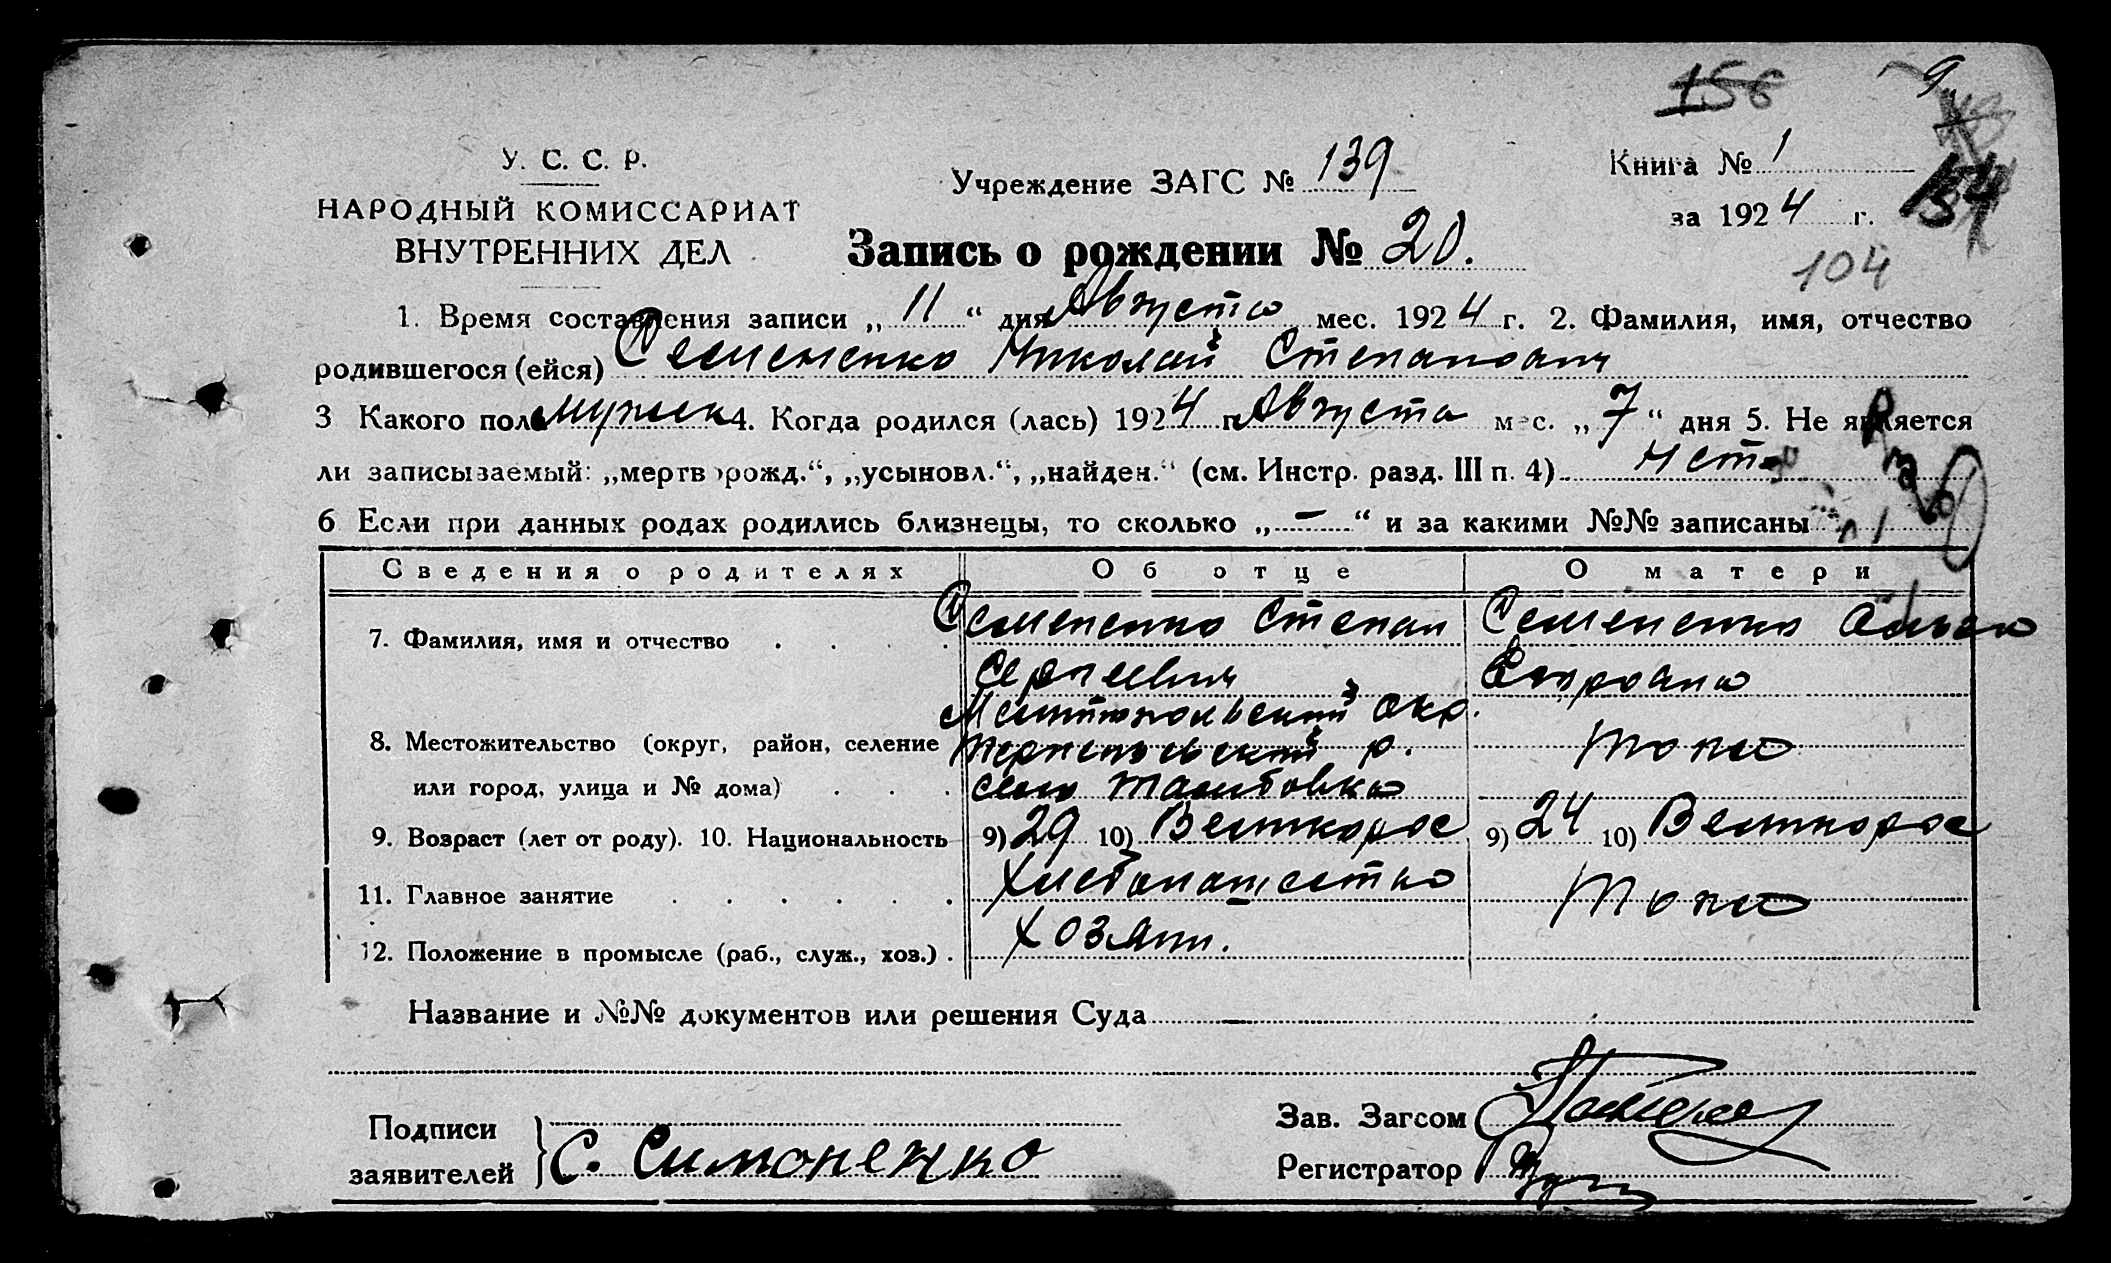 156
9
У. С. С. Р.
НАРОДНЫЙ КОМИССАРИАТ
ВНУТРЕННИХ ДЕЛ
Учреждение ЗАГС № 139
Книга № 1
за 1924 г.
154
104
Запись о рождении № 20.
1. Время составления записи „ 11 “ дня Августа мес. 1924 г. 2. Фамилия, имя, отчество
родившегося (ейся) Семененко Николай Степанович
3 Какого пола мужск 4. Когда родился (лась) 1924 г. Августа мес. „ 7 “ дня 5. Не является
ли записываемый: „мертворожд.“, „усыновл.“, „найден.“ (см. Инстр. разд. III п. 4)
6 Если при данных родах родились близнецы, то сколько „ — “ и за какими №№ записаны
Сведения о родителях Об отце О матери
7. Фамилия, имя и отчество Семененко Степан Семененко
Сергеевич
Мелитопольский окр.
8. Местожительство (округ, район, селение р. тоже
или город, улица и № дома) село
9. Возраст (лет от роду). 10. Национальность 9) 29 10) Великорос 9) 24 10) Великорос
11. Главное занятие Хлебопашество тоже
12. Положение в промысле (раб., служ., хоз.) Хозяин.
Название и №№ документов или решения Суда —
Подписи
заявителей С. Симоненко
Зав. Загсом
Регистратор